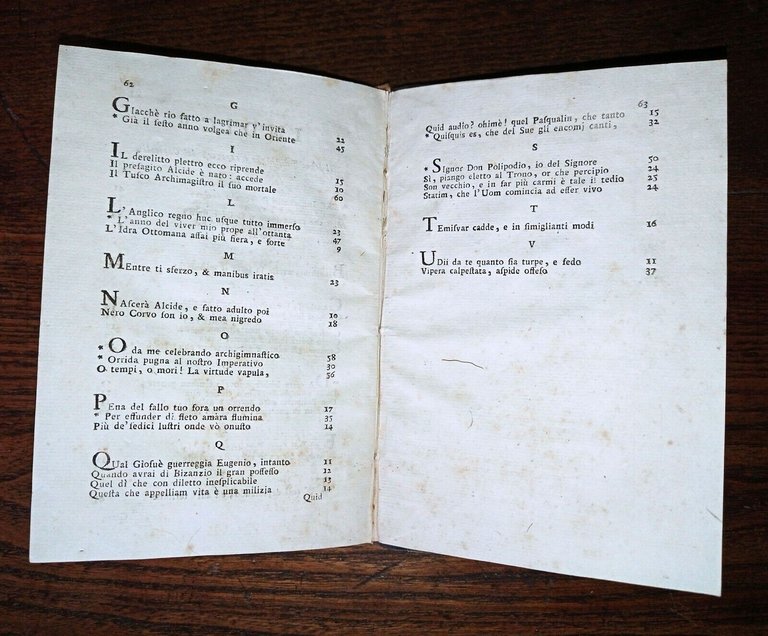 62
G
GIacchè rio fatto a lagrimar v'invita 22
* Già il ſeſto anno volgea che in Oriente 45
I
IL derelitto plettro ecco riprende 15
Il prefagito Alcide è nato: accede 10
Il Tuſco Archimagiſtro il ſuo mortale 60
L
L'Anglico regno huc uſque tutto immerſo 23
* L'anno del viver mio prope all'ottanta 47
L'Idra Ottomana aſſai più fiera, e forte 9
M
MEntre ti sferzo, & manibus iratis 23
N
NAſcerà Alcide, e fatto adulto poi 10
Nero Corvo ſon io, & mea nigredo 18
O
* O da me celebrando archigimnaſtico 58
* Orrida pugna al noſtro Imperativo 30
O tempi, o mori! La virtude vapula, 56
P
PEna del fallo tuo fora un orrendo 17
* Per effunder di fleto amàra flumina 35
Più de' ſedici luſtri onde vò onuſto 24
Q
QUal Gioſuè guerreggia Eugenio, intanto 11
Quando avrai di Bizanzio il gran poſſeſſo 12
Quel dì che con diletto ineſplicabile 13
Queſta che appelliam vita è una milizia 14
Quid
63
Quid audio? ohimè! quel Paſqualin, che tanto 15
* Quiſquis es, che del Sue gli encomj canti, 32
S
* SIgnor Don Polipodio, io del Signore 50
Sì, piango eletto al Trono, or che percipio 24
Son vecchio, e in far più carmi è tale il tedio 25
Statim, che l'Uom comincia ad eſſer vivo 24
T
TEmiſvar cadde, e in ſimiglianti modi 16
V
UDii da te quanto ſia turpe, e fedo 11
Vipera calpeſtata, aſpide offeſo 37